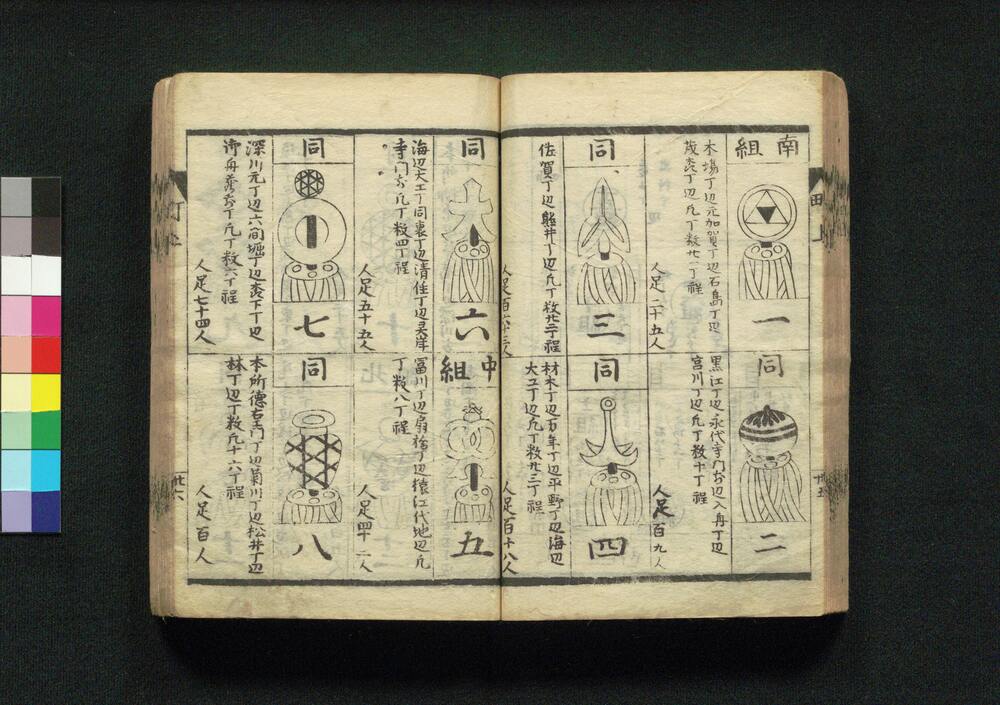 南組
一
木場丁辺元加賀丁辺石島丁辺
茂森丁辺凡丁数廿一丁程
人足二十五人
同
二
黒江丁辺永代寺門前辺入舟丁辺
宮川丁辺凡丁数十丁程
人足百九人
同
三
佐賀丁辺熊井丁辺凡丁数廿二丁程
同
四
材木丁辺万年丁辺平野丁辺海辺
大工丁辺凡丁数廿三丁程
人足百十八人
同
大
六
海辺大工丁同裏丁辺清住丁辺灵岸
寺門前凡丁数四丁程
人足五十五人
中組
五
冨川丁辺扇橋丁辺猿江代地辺凡
丁数八丁程
人足四十二人
同
七
深川元丁辺六間堀丁辺森下丁辺
御舟蔵前丁凡丁数六丁程
人足七十四人
同
八
本所徳右エ門丁辺菊川丁辺松井丁辺
林丁辺丁数凡十六丁程
人足百人
廿五
廿六